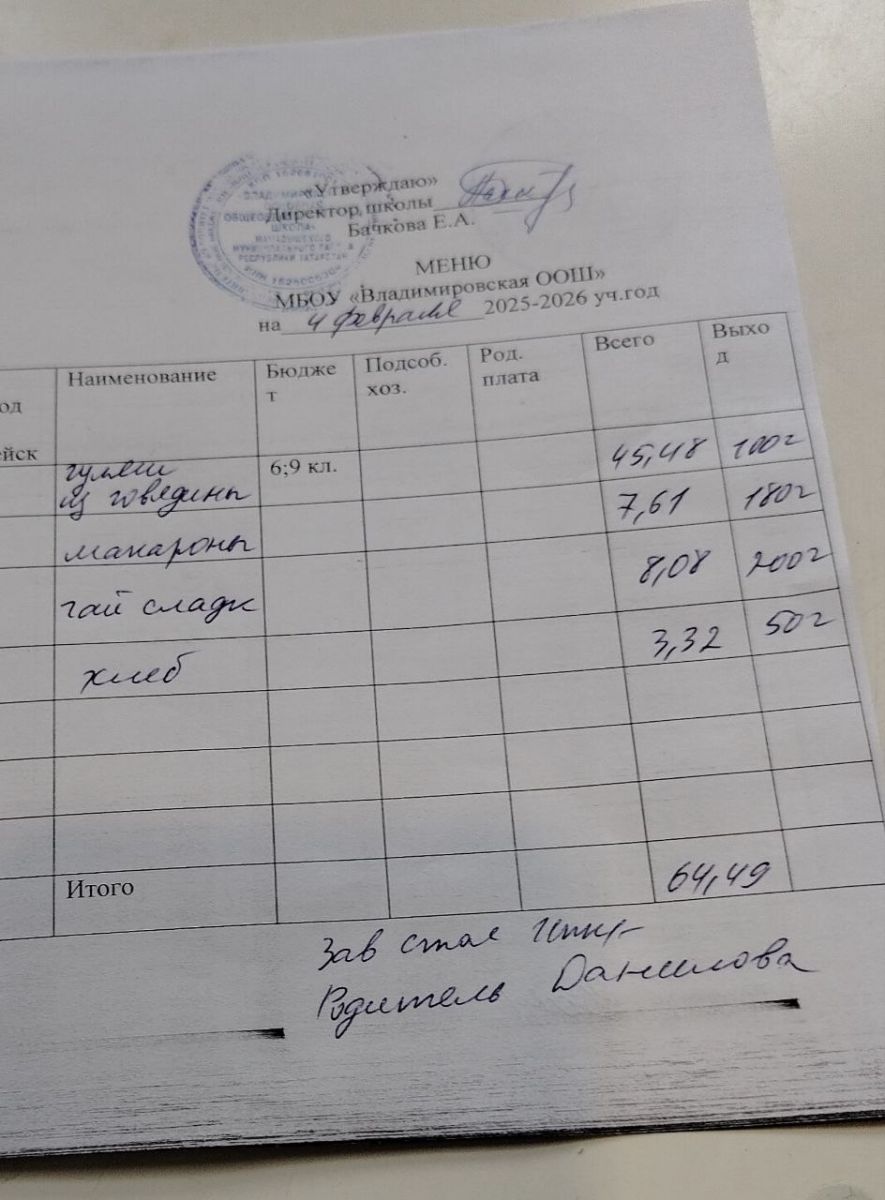 «Утверждаю»
Директор школы
Бачкова Е.А.
МЕНЮ
МБОУ «Владимировская ООШ»
на 4 февраля 2025-2026 уч.год
од
ейск
Наименование
Бюдже
т
Подсоб.
хоз.
Род.
плата
Всего
Выхо
д
гуляш
из говядины
6;9 кл.
45,48 100г
макароны
7,61 180г
чай сладк
8,08 200г
хлеб
3,32 50г
Итого
64,49
Зав стол
Родитель Данилова